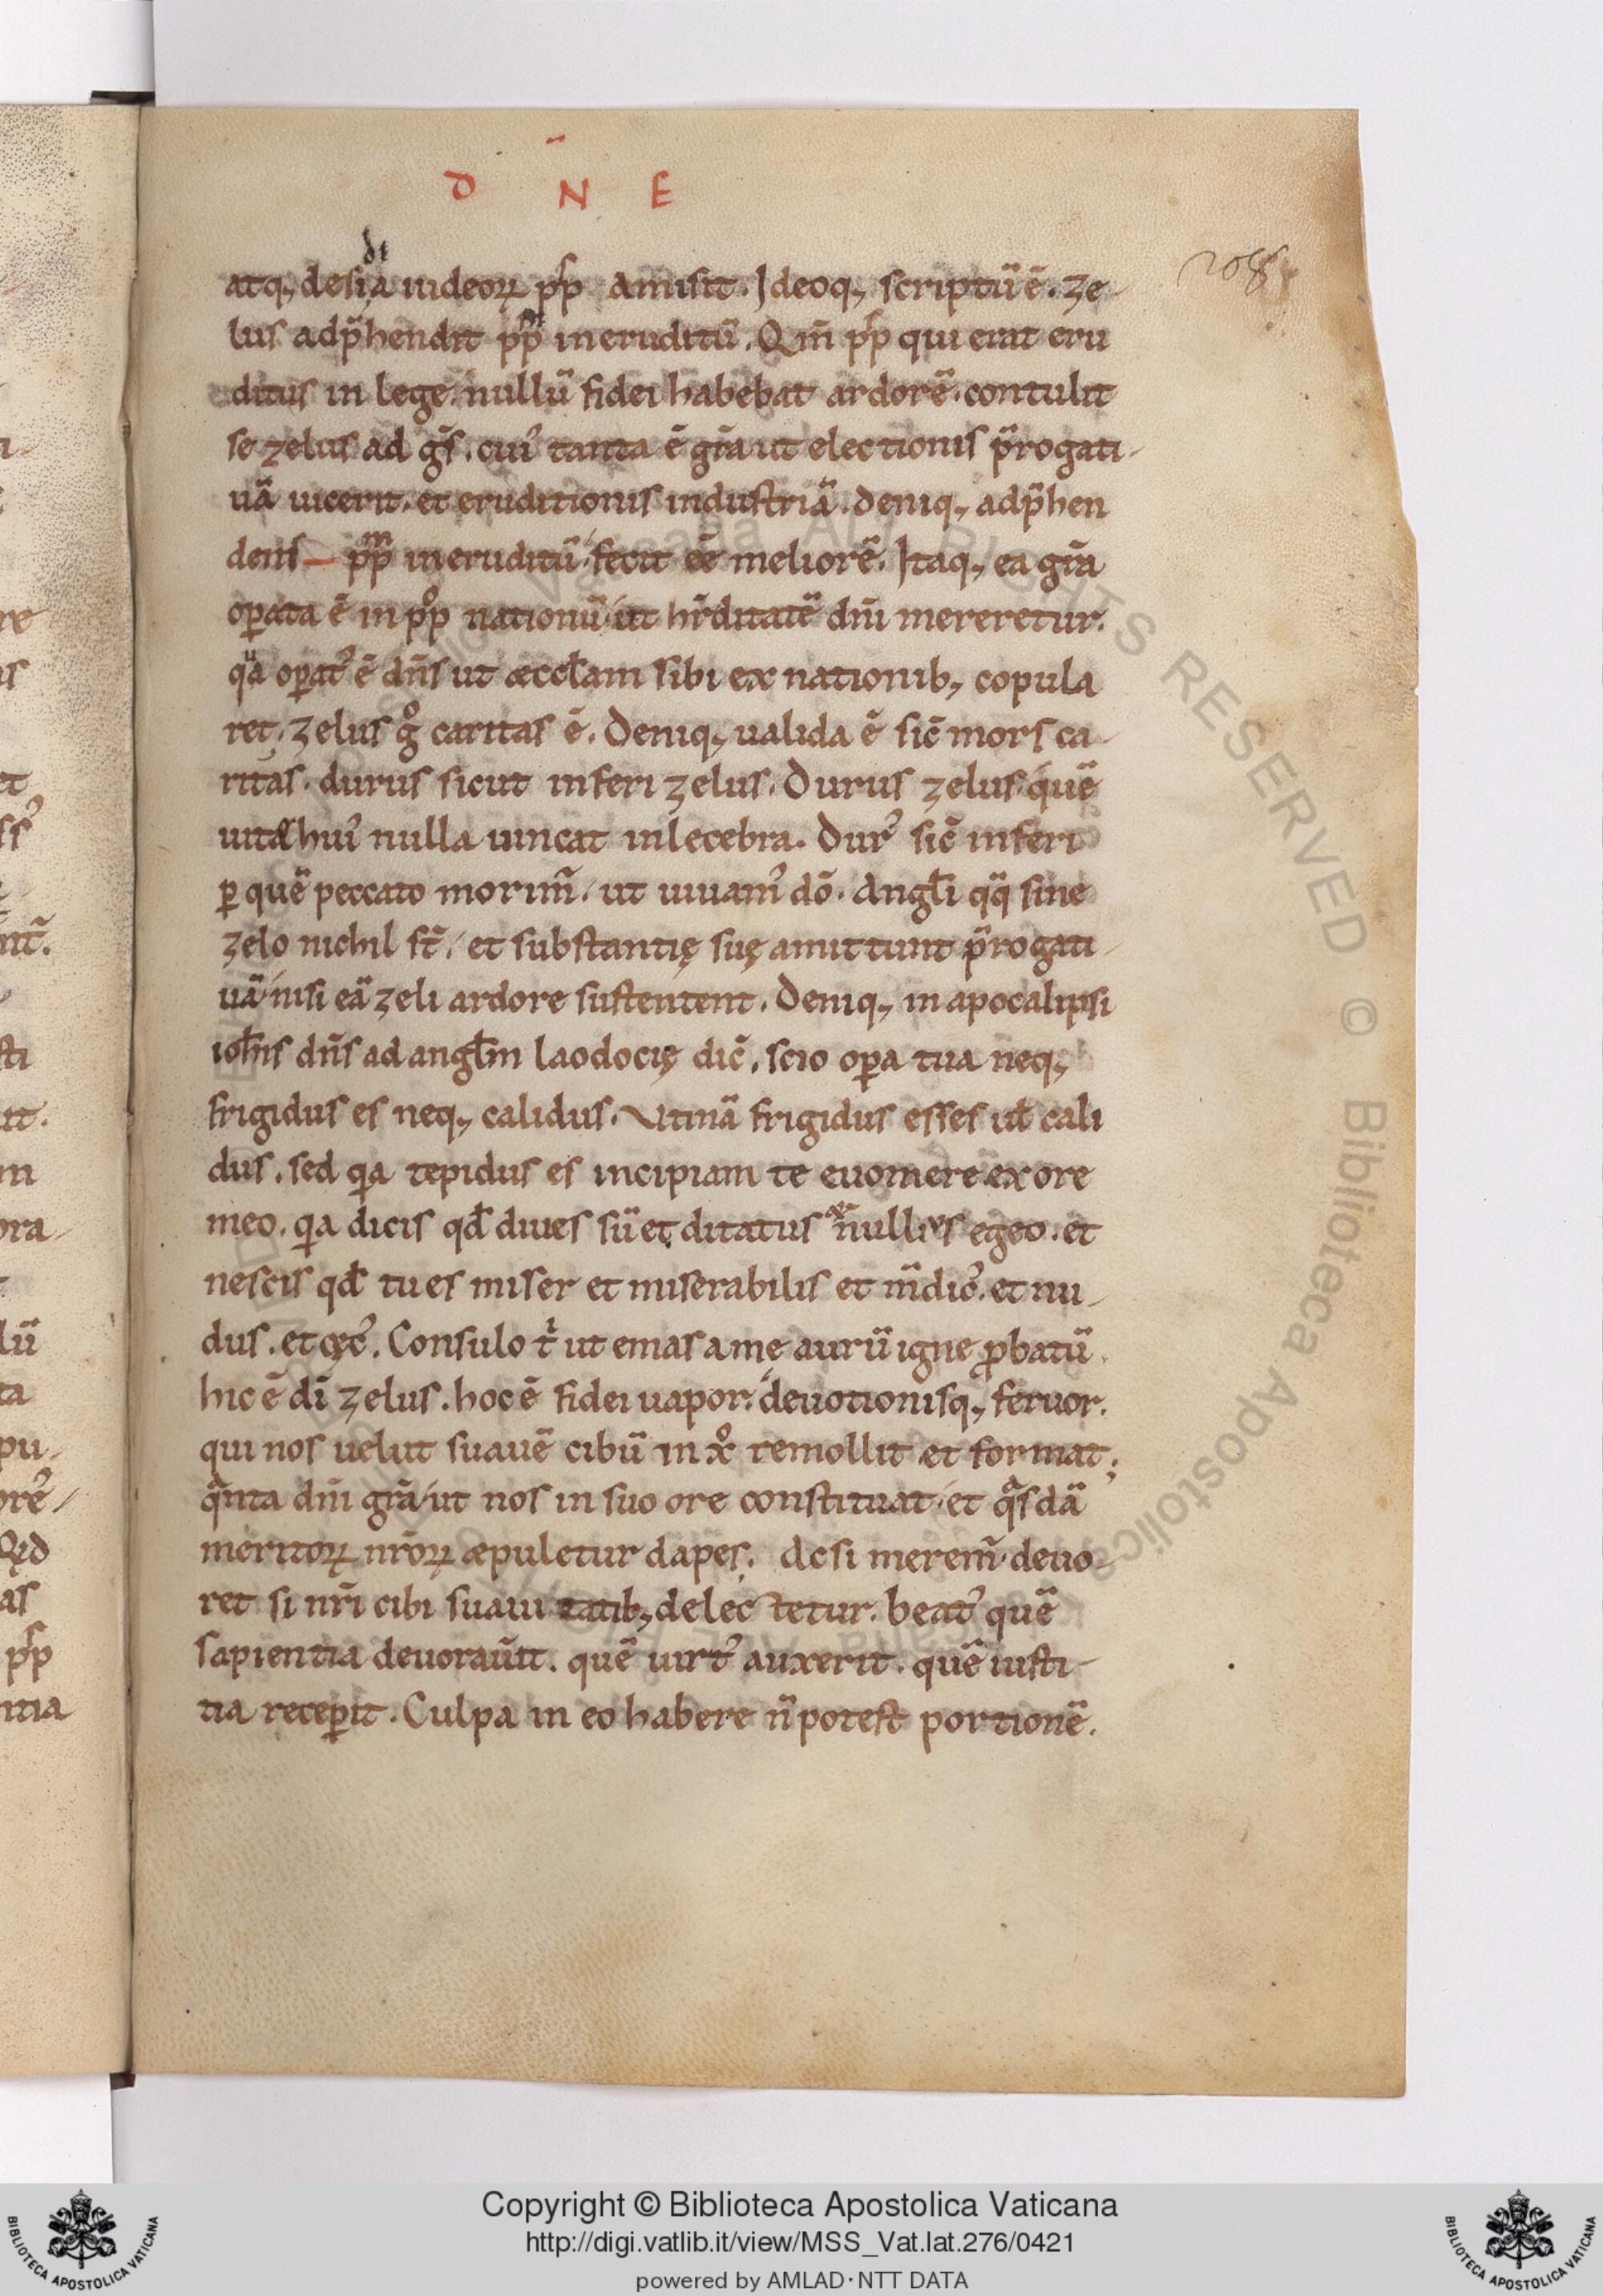 D N̄ E
208
di
atq; desi a iudeoꝝ pp̄s amisit. Ideoq; scriptū ē. ze-
lus adp̄hendit pp̄m ineruditū. Qm̄ pp̄s qui erat eru
ditus in lege. nullū fidei habebat ardorē. contulit
se zelus ad ḡs. cuiꝰ tanta ē gr̄a ut electionis p̄rogati-
uā uicerit. et eruditionis industriā. Deniq; adp̄hen
dens pp̄m ineruditū fecit eē meliorē. Itaq; ea gr̄a
oꝑata ē in ppᵒ nationū ut hr̄ditatē dn̄i mereretur.
qᵘa oꝑatꝰ ē dn̄s ut æccl̄am sibi ex nationib; copula
ret. Zelus gᵒ caritas ē. Deniq; ualida ē sic̄ mors ca-
ritas. durus sicut inferi zelus. Durus zelus quē
uitæ huiꝰ nulla uincat inlecebra. Durꝰ sic̄ inferi
ꝑ quē peccato morim̄. ut uiuamꝰ dō. Angl̄i qq̄ sine
zelo nichil st̄. et substantię suę amittunt p̄rogati-
uā nisi eā zeli ardore sustentent. Deniq; in apocalipsi
ioh̄is dn̄s ad angl̄m laodocię dic̄. scio oꝑa tua neq;
frigidus es neq; calidus. Vtinā frigidus esses ul̄ cali
dus. sed qꝛa tepidus es incipiam te euomere ex ore
meo. qꝛa dicis qd̄ diues sū et ditatus & nullius egeo. et
nescis qd̄ tu es miser et miserabilis et m̄dicꝰ. et nu-
dus. et cęcꝰ. Consulo tⁱ ut emas a me aurū igne ꝓbatū.
hic ē dī zelus. hoc ē fidei uapor. deuotionisq; feruor.
qui nos uelut suauē cibū in xᵒ remollit et format;
qᵃnta dn̄i gr̄a ut nos in suo ore constituat et qᵃsdā
meritoꝝ nr̄oꝝ æpuletur dapes. Ac si merem̄ deuo-
ret si nr̄i cibi suaui tatib; delec tetur. beatꝰ quē
sapientia deuorau̅it. quē uirtꝰ auxerit. quē iusti-
tia receꝑit. Culpa in eo habere n̄ potest portionē.
Copyright © Biblioteca Apostolica Vaticana
http://digi.vatlib.it/view/MSS_Vat.lat.276/0421
powered by AMLAD·NTT DATA